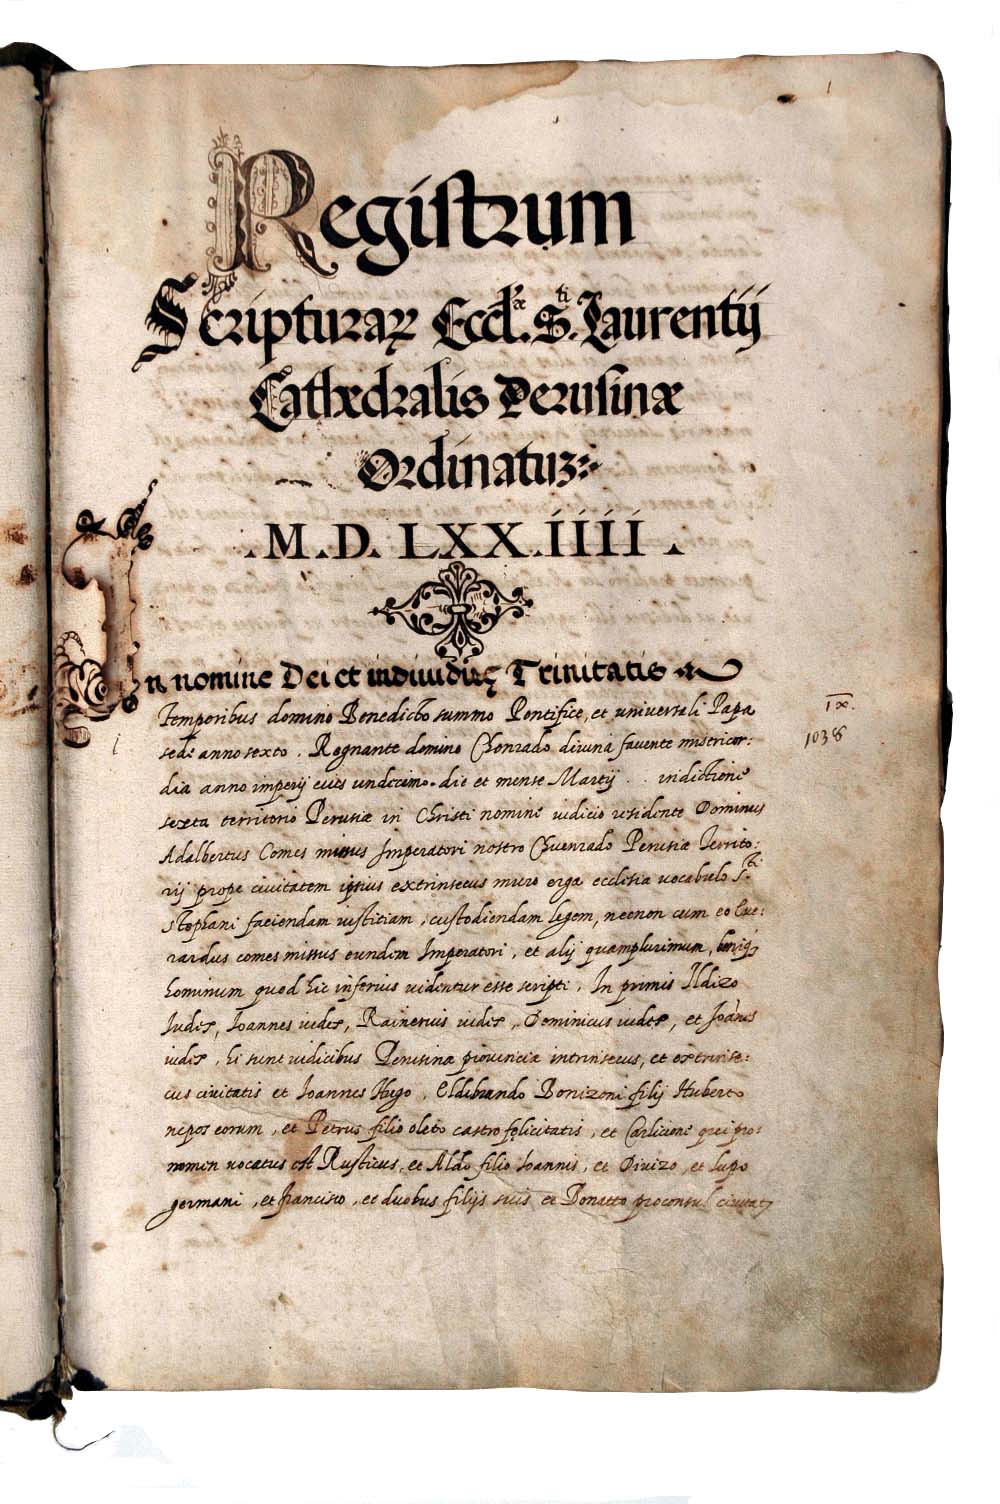 1
Registrum
Scripturaꝝ Eccl.æ S.ti Laurentij
Cathedralis Perusinæ
Ordinatuz
.M.D.LXXIIII.
In nomine Dei et indiuiduę Trinitatis
Temporibus domino Benedicto summo Pontifice, et uniuersali Papa
sede anno sexto. Regnante domino Chonrado diuina fauente misericor:
dia anno imperij eius undecimo. die et mense Martij . . indictione
sexta territorio Perusiæ in Christi nomine iudicio residente Dominus
Adalbertus Comes missus Imperatori nostro Chuenrado Perusiæ Territo:
rij prope ciuitatem ipsius extrinsecus muro erga ecclesia uocabulo S.ti
Stephani faciendam iustitiam, custodiendam legem, necnon cum eo Eue:
rardus comes missus eundem Imperatori, et alij quamplurimum
hominum quod hic inferius uidentur esse scripti. In primis Ildizo
Iudex, Ioannes iudex, Rainerius iudex, Dominicus iudex, et Ioanes
iudex, hi sunt iudicibus Perusinæ prouinciæ intrinsecus, et extrinse:
cus ciuitatis et Ioannes Hugo, Eldibrando Bonizoni filij Huberto
nepos eorum, et Petrus filio oleto castro felicitatis, et Carlicione qui pro:
nomen uocatus est Rusticus, et Aldo filio Ioannis, et Diuizo, et Lupo
germani, et francisco, et duobus filijs suis et Donatto proconsul ciuitat
IX.
1038